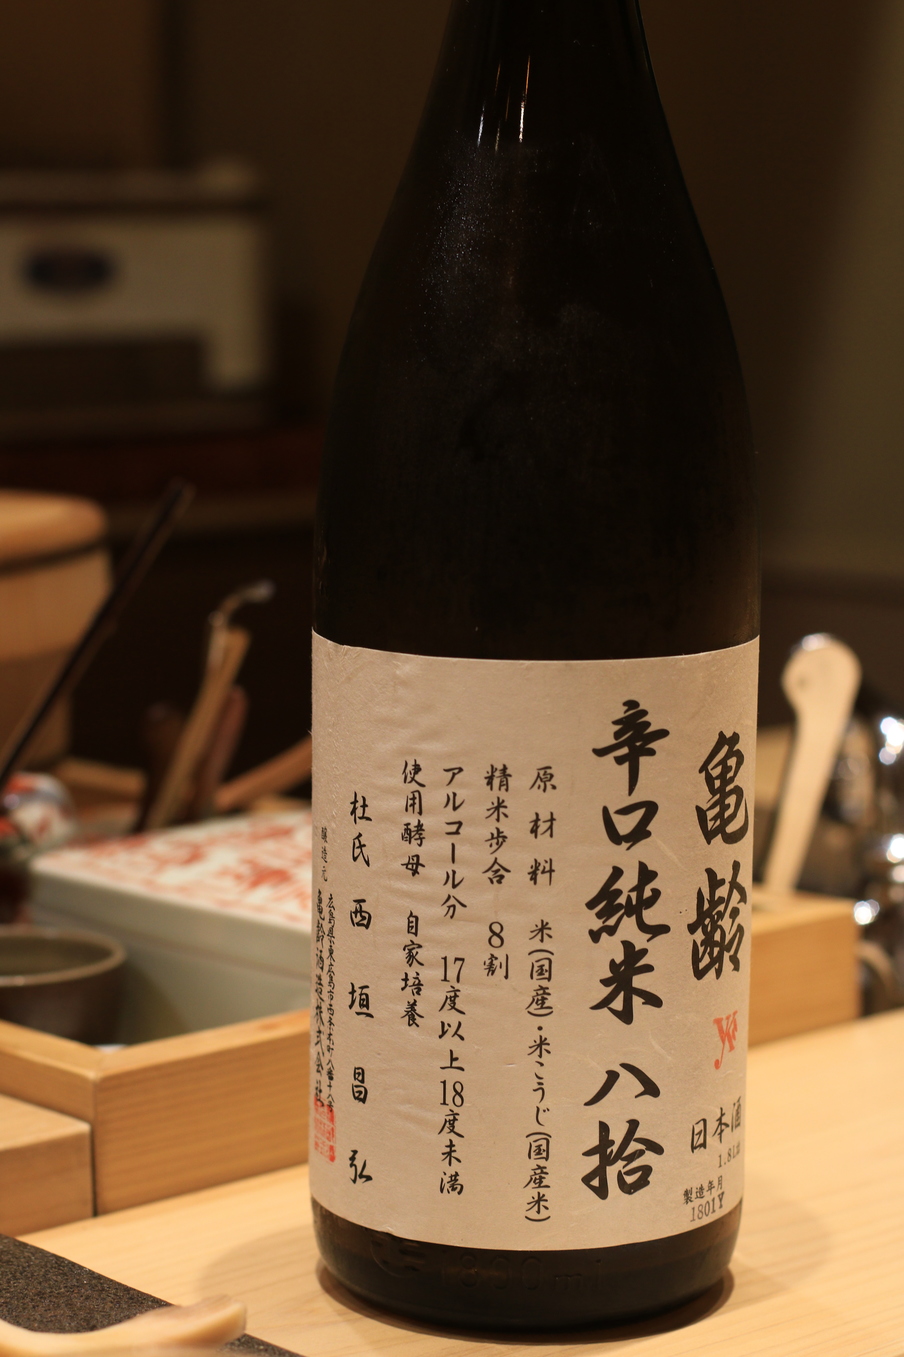 亀齢
日本酒
1.8L
製造年月
1801Y
辛口純米 八拾
原材料 米(国産)・米こうじ(国産米)
精米歩合 8割
アルコール分 17度以上18度未満
使用酵母 自家培養
杜氏 西垣昌弘
醸造元 亀齢酒造株式会社